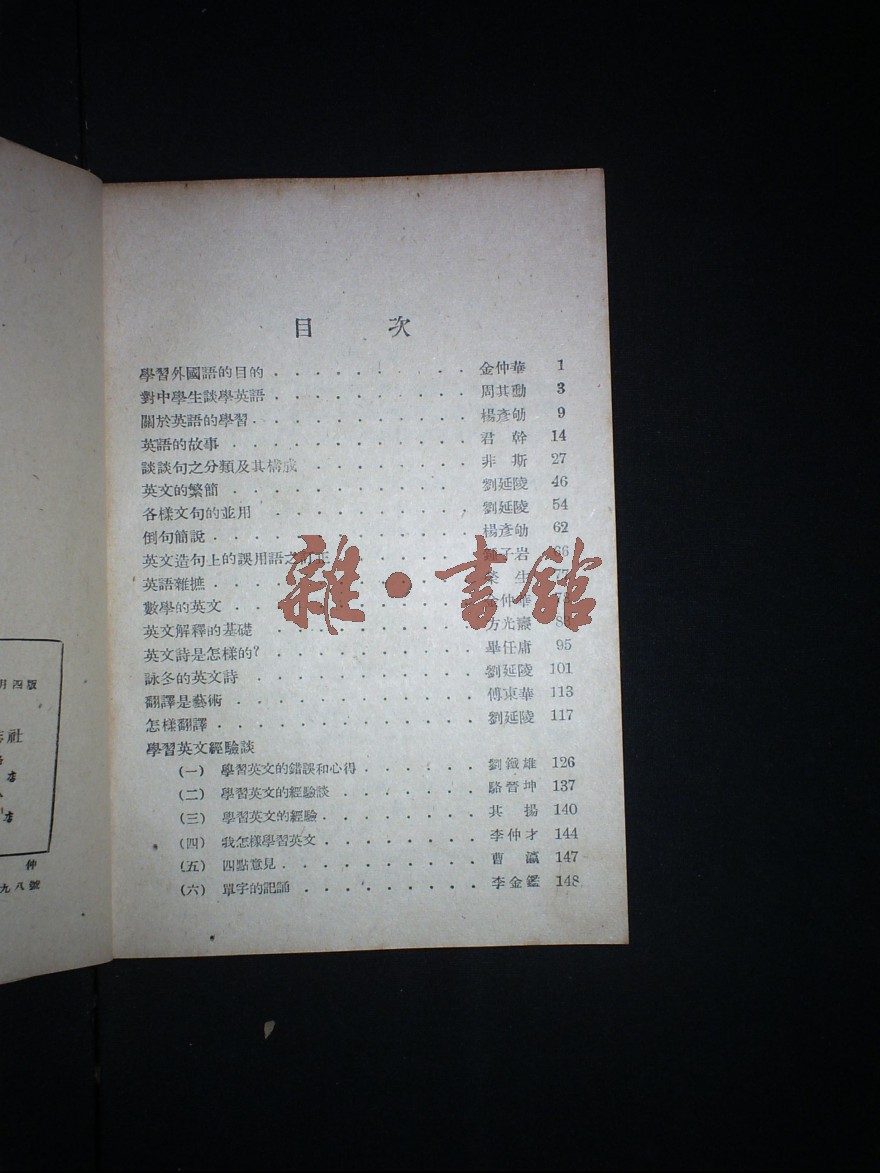 目 次
學習外國語的目的 . . . . . . . . . 金仲華 1
對中學生談學英語 . . . . . . . . . 周其勳 3
關於英語的學習 . . . . . . . . . 楊彥劬 9
英語的故事 . . . . . . . . . 君幹 14
談談句之分類及其構成 . . . . . . . 非斯 27
英文的繁簡 . . . . . . . . . 劉延陵 46
各樣文句的並用 . . . . . . . . . 劉延陵 54
倒句簡說 . . . . . . . . . 楊彥劬 62
英文造句上的誤用語之訂正 子岩 66
英語雜摭 生
數學的英文 金仲華
英文解釋的基礎 方光燾
英文詩是怎樣的? . . . . . . . . . 畢任庸 95
詠冬的英文詩 . . . . . . . . . 劉延陵 101
翻譯是藝術 . . . . . . . . . 傅東華 113
怎樣翻譯 . . . . . . . . . 劉延陵 117
學習英文經驗談
(一) 學習英文的錯誤和心得 . . . . . . 劉鐵雄 126
(二) 學習英文的經驗談 . . . . . . . 駱晉坤 137
(三) 學習英文的經驗 . . . . . . . . 其揚 140
(四) 我怎樣學習英文 . . . . . . . . 李仲才 144
(五) 四點意見 . . . . . . . . . 曹瀛 147
(六) 單字的記誦 . . . . . . . . . 李金鑑 148
雜·書館
月四版
社
店
店
仲
九八號